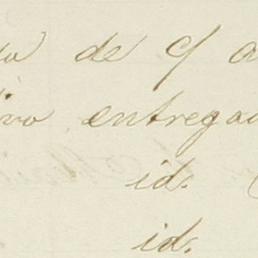 de c/ a
ivo entregad
id.
id.